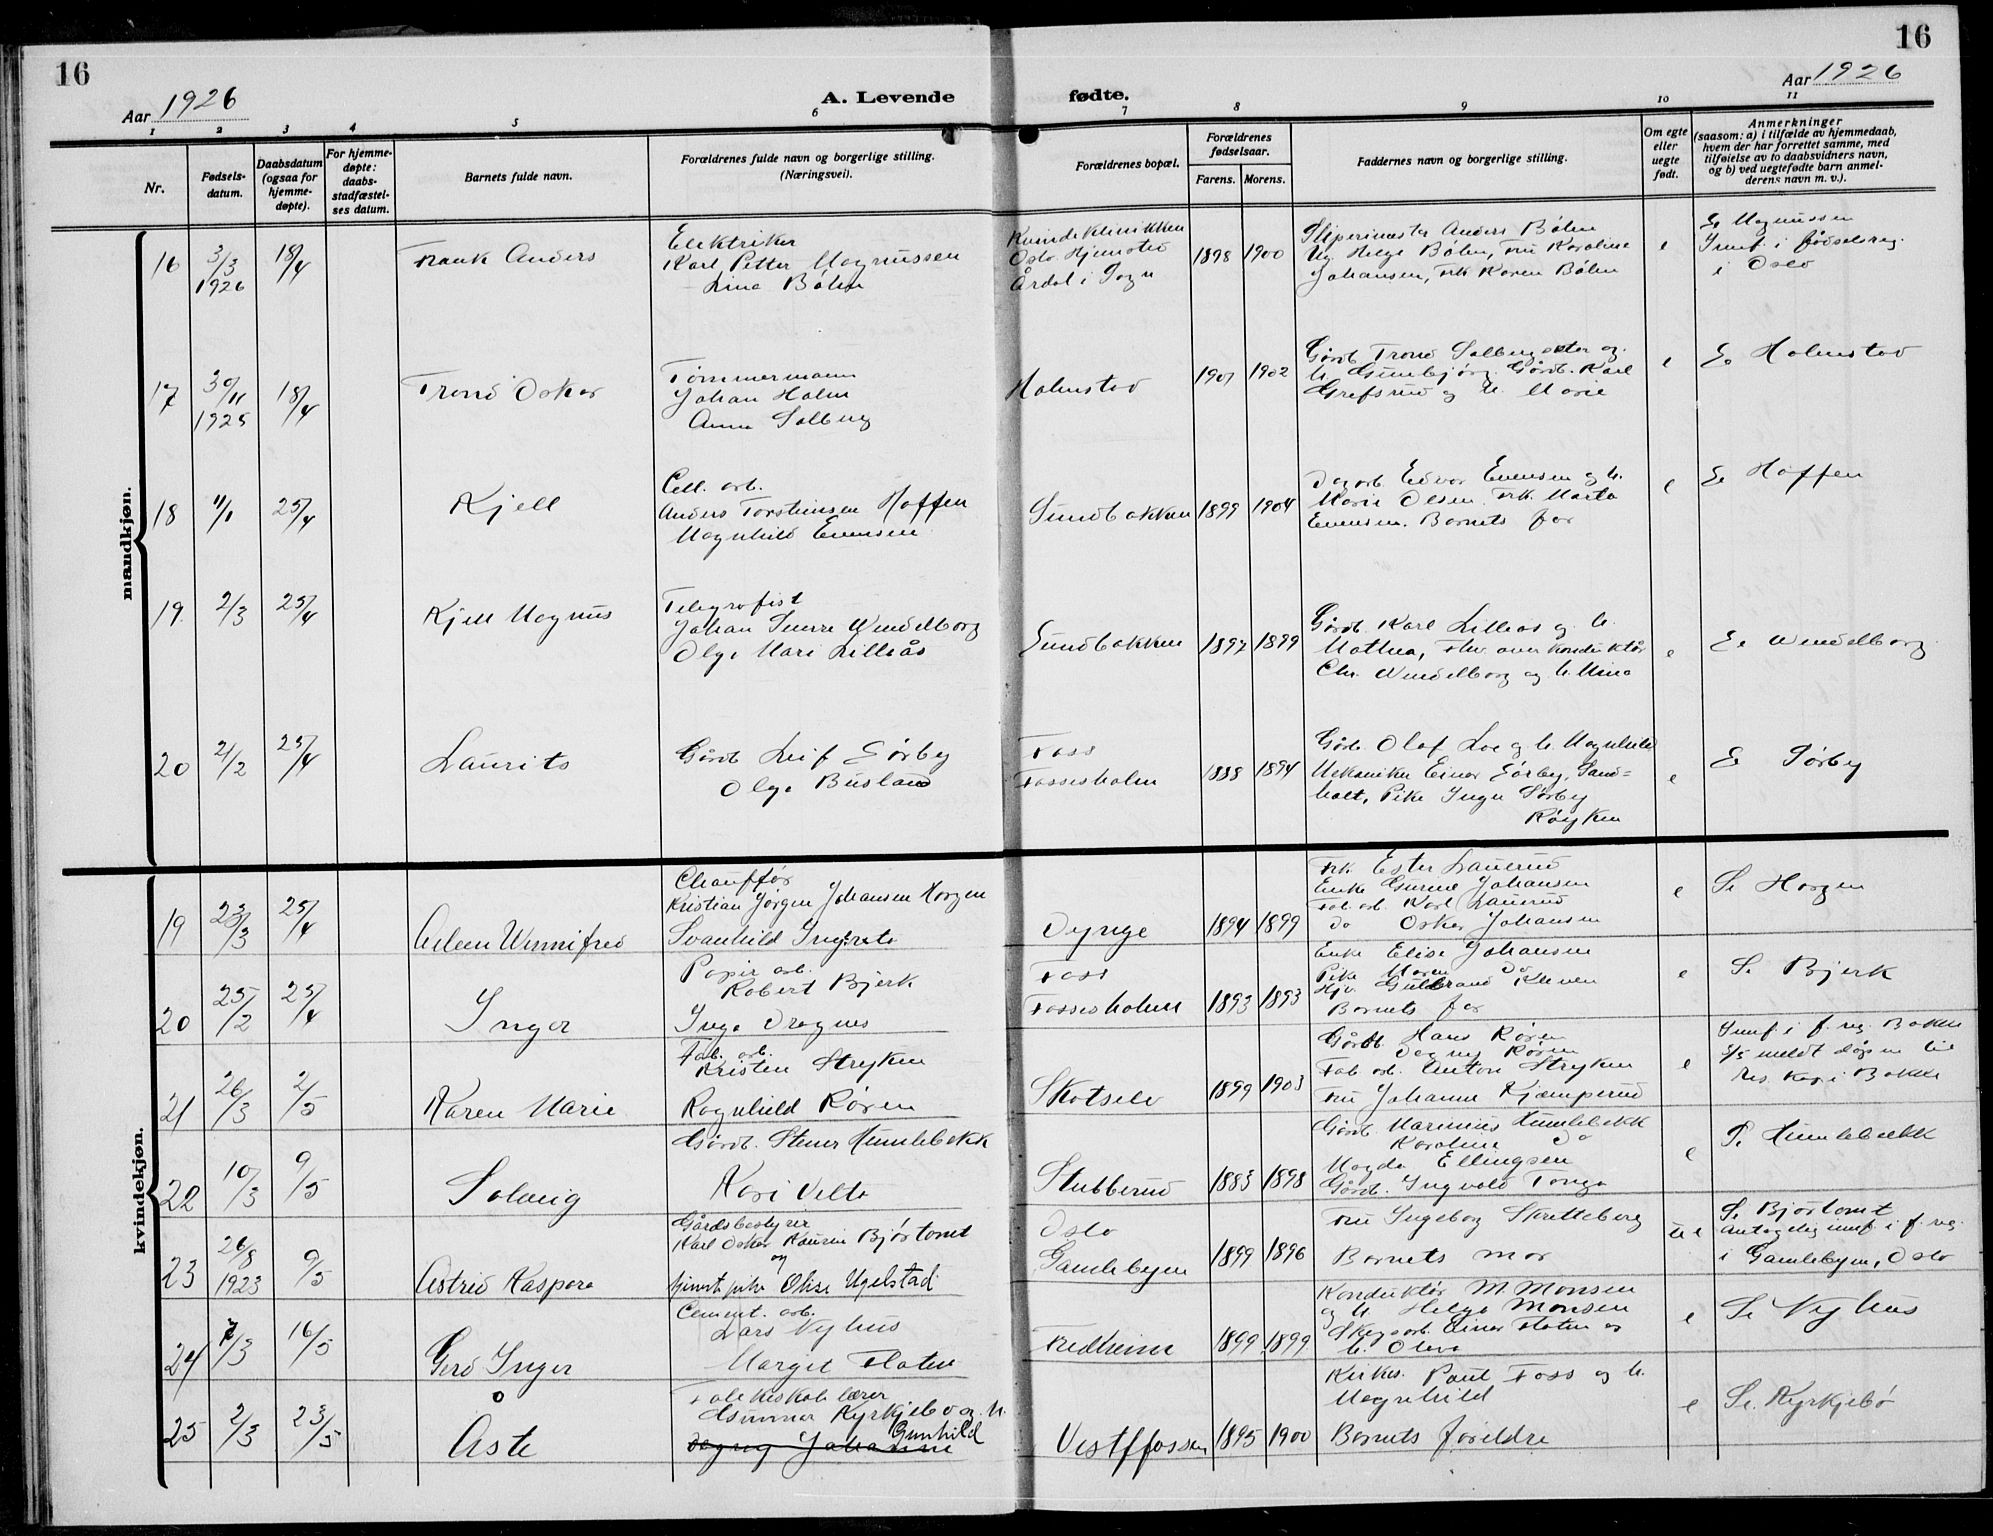 16
16
Aar 1926
A. Levende
fødte.
Aar 1926
1 2 3 4 5 6 7 8 9 10 11
Nr.
Fødsels-
datum.
Daabsdatum
(ogsaa for
hjemme-
døpte).
For hjemme-
døpte:
daabs-
stadfæstel-
ses datum.
Barnets fulde navn.
Forældrenes fulde navn og borgerlige stilling.
(Næringsvei).
Forældrenes bopæl.
Forældrenes
fødselsaar.
Farens. Morens.
Faddernes navn og borgerlige stilling.
Om egte
eller
uegte
født.
Anmerkninger
(saasom: a) i tilfælde av hjemmedaab,
hvem der har forrettet samme, med
tilføielse av to daabsvidners navn,
og b) ved uegtefødte barn anmel-
derens navn m. v.).
mandkjøn.
16
3/3
1926
18/4
Frank Anders
Elektriker
Karl Petter Magnussen
Lina Bølen
Kvindeklinikken
Oslo. Hjemsted
Årdal i Sogn
1898 1900
Sliperimester Anders Bølen
Ug. Helge Bølen, Fru Karoline
Johansen, Frk Karen Bølen
e
E. Magnussen
Innf. i fødselsreg.
i Oslo
17
30/11
1925
18/4
Trond Oskar
Tømmermann
Johan Holm
Anna Solberg
Holmstad
1901 1902
Gårdb. Trond
h. Gunbjørg. Gårdb. Karl
Grefsrud og h. Marie
e
E. Holmstad
18
11/1
25/4
Kjell
Cell. arb.
Anders Torsteinsen Hoffen
Magnhild Evensen
Sundbakken
1899 1904
Dagarb Edvar Evensen og h.
Marie Olsen. Frk. Marta
Evensen. Barnets far
e
E. Hoffen
19
2/3
25/4
Kjell Magnus
Telegrafist
Johan Sverre Wendelborg
Olga Mari Lillås
Sundbakken
1897 1899
Gårdb. Karl Lillås og h.
Mathea, Fhv. overkonduktør
Chr. Wendelborg og h. Mina
e
E. Wendelborg
20
21/2
25/4
Laurits
Gårdb Leif Sørby
Olga Busland
Foss
Fossesholm
1888 1894
Gårdb. Olaf Loe og h. Magnhild
Mekaniker Einar Sørby, Sand=
holt, Pike Inga Sørby
Røyken
e
E. Sørby
kvindekjøn.
19
23/3
25/4
Aileen Winnifred
Chauffør
Kristian Jørgen Johansen Horgen
Svanhild Ingreta
Dynge
1894 1899
Frk. Ester Laurud
Enke Gurine Johansen
Fab. arb. Karl Laurud
do Oskar Johansen
e
S. Horgen
20
25/2
25/4
Inger
Papir arb.
Robert Bjerk
Inga Dragnes
Foss
Fossesholm
1893 1893
Enke Elise Johansen
Pike Maren do
Hjv. Guldbrand Kleven
Barnets far
e
S. Bjerk
21
26/3
2/5
Karen Marie
Fab. arb.
Kristen Stryken
Ragnhild Røren
Skotselv
1899 1903
Gårdb. Hans Røren
Dagny Røren
Fab arb. Anton Stryken
Fru Johanne Kjæmperud
e
Innf. i f. reg. Bakke
3/5 meldt dåpen til
res. kap. i Bakke
22
10/3
9/5
Solveig
Gårdb. Stener Humlebekk
Kari Velta
Stubberud
1883 1898
Gårdb. Marinius Humlebekk
Karoline do
Magda Ellingsen
Gårdb. Ingvald Tonga
e
S. Humlebekk
23
26/8
1923
9/5
Astrid Kaspara
Gårdsbestyrer
Karl Oskar Bjørtomt
og
Ugelstad
Oslo
Gamlebyen
1899 1896
Fru Ingeborg Skretteberg
Barnets mor
ue
S. Bjørtomt
Antagelig innf. i f. reg.
i Gamlebyen, Oslo
24
7/3
16/5
Gerd Inger
Cement. arb.
Lars Nyhus
Margit Flaten
Fredheim
1899 1899
Konduktør M. Monsen
og h. Helga Monsen
Skogsarb. Einar Flaten og
h. Olava
e
S. Nyhus
25
2/3
23/5
Åste
Folkeskolelærer
Gunnar Kyrkjebø og h.
Gunhild
Vestffossen
1895 1900
Kirkes. Paul Foss og h.
Magnhild
Barnets foreldre
e
S. Kyrkjebø